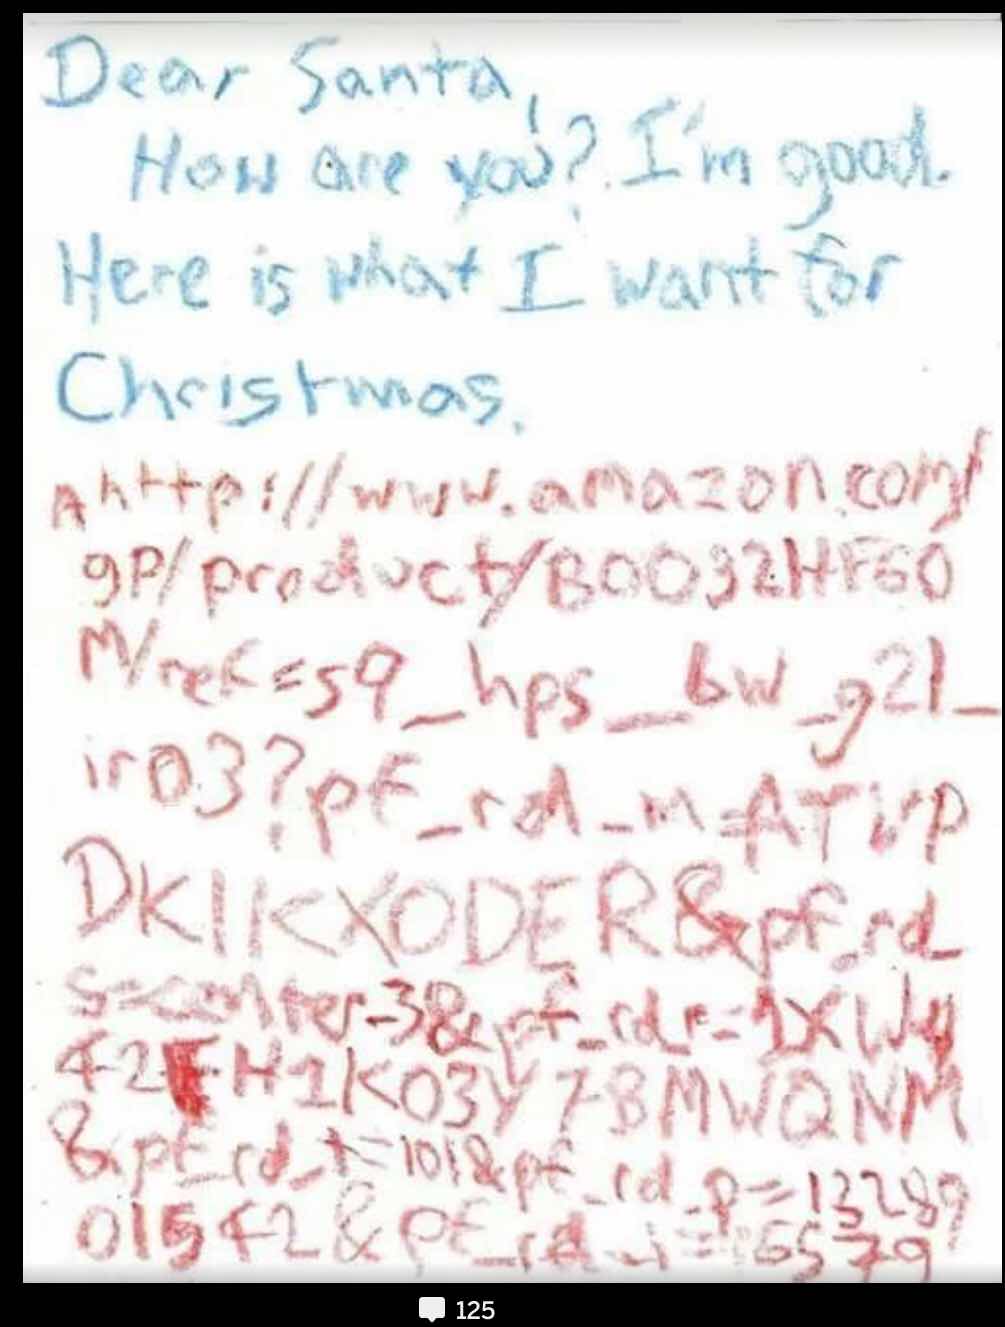 Dear Santa,
How are you? I'm good.
Here is what I want for
Christmas.
A http://www.amazon.com/
gp/product/B0032HF60
M/ref=s9_hps_bw_g21_
ir03?pf_rd_m=ATVP
DKIKX0DER&pf_rd_
s=center-3&pf_rd_r=1XW4
42FH1K03Y7BMWQNM
&pf_rd_t=101&pf_rd_p=13289
01542&pf_rd_i=16579
125